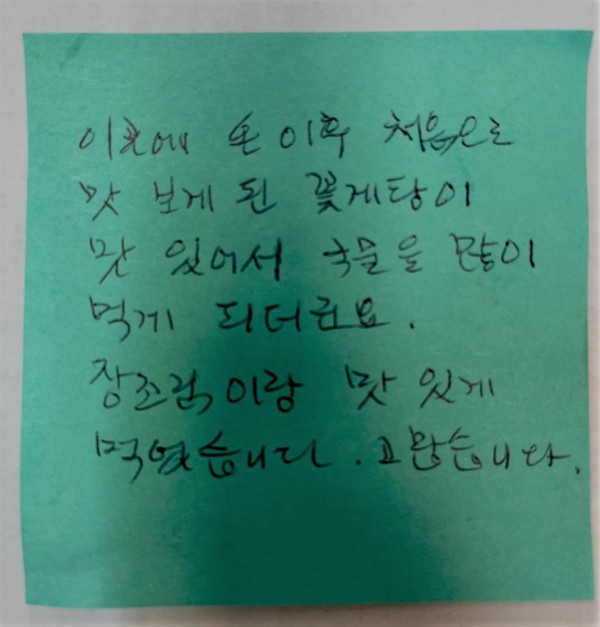 이곳에 온 이후 처음으로
맛 보게 된 꽃게탕이
맛 있어서 국물을 많이
먹게 되더라고요.
장조림이랑 맛 있게
먹었습니다. 고맙습니다.